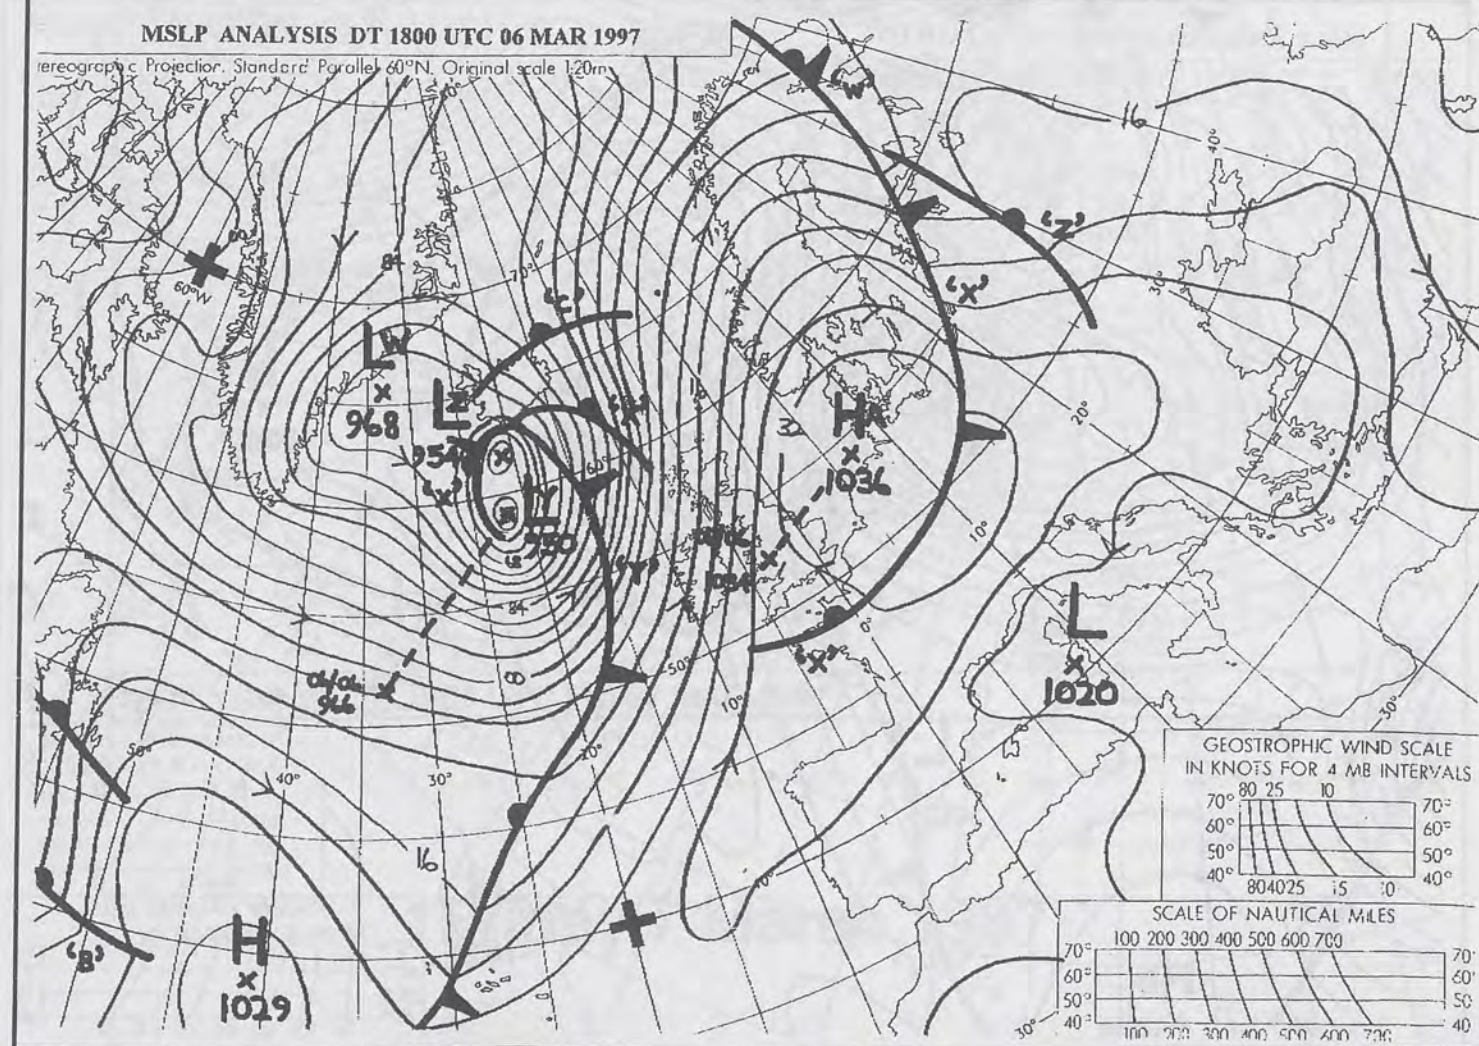 MSLP ANALYSIS DT 1800 UTC 06 MAR 1997
ereographic Projection. Standard Parallel 60°N. Original scale 1:20m
'W'
16
40°
'Z'
60°
60°W
84
70°
'C'
'X'
30°
LW
968
LZ
954
'X'
'A'
60°
LY
950
'Y'
84
32
HA
1036
20°
10°
06/06
1034
'X'
0°
L
1020
30°
50°
10°
06/06
966
8
50°
40°
30°
20°
16
'B'
H
1029
GEOSTROPHIC WIND SCALE
IN KNOTS FOR 4 MB INTERVALS
80 25 10
70° 70°
60° 60°
50° 50°
40° 40°
80 40 25 15 10
SCALE OF NAUTICAL MILES
100 200 300 400 500 600 700
70° 70°
60° 60°
50° 50
40° 40
100 200 300 400 500 600 700
30°